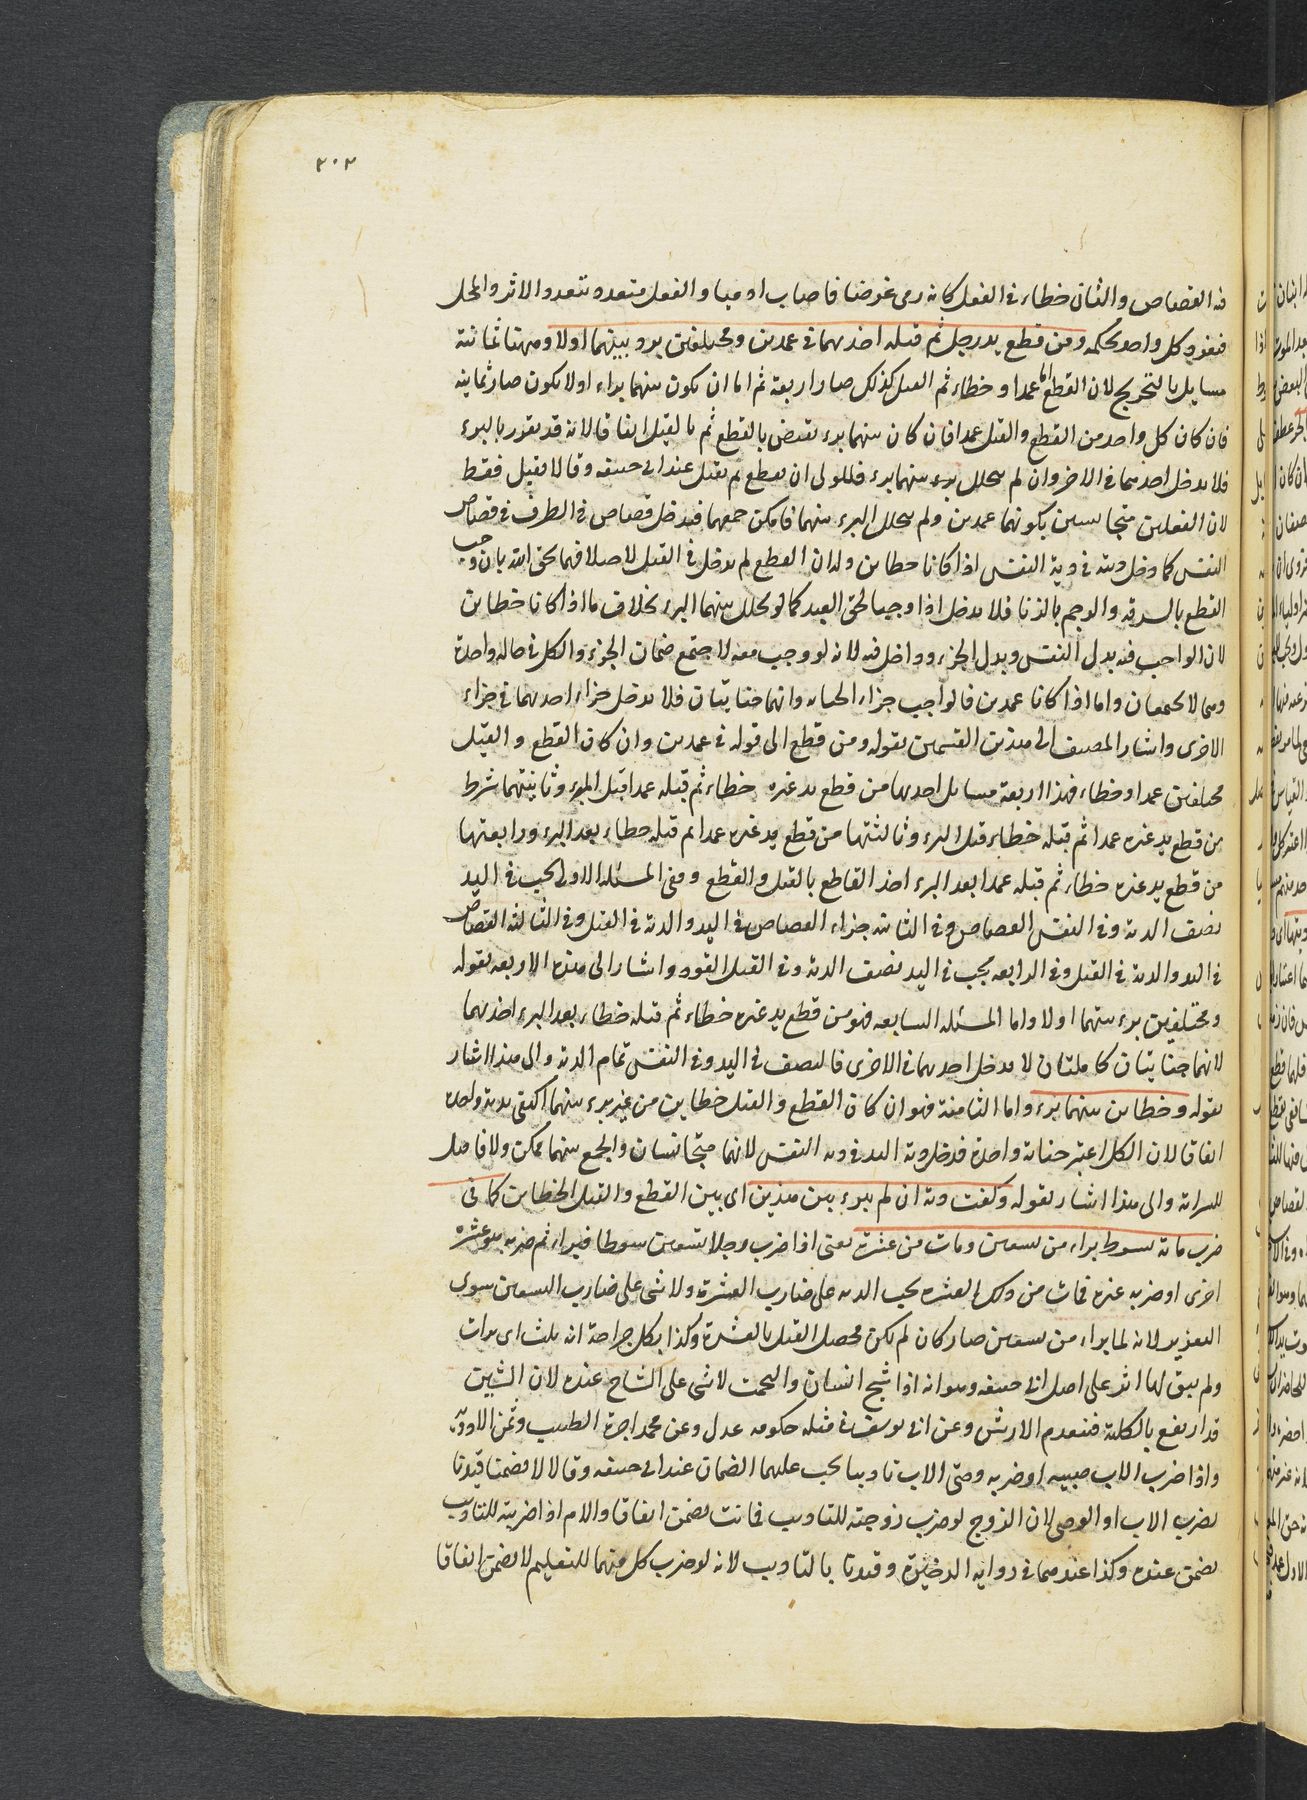 ٣٠٣
فيه القصاص والثاني خطاء في الفعل كانه رمى غرضا فاصاب ادميا والفعل متعدد بتعدد الاثر والمحل
فيفرد كل واحد بحكمه ومن قطع يد رجل ثم قتله اخذ بهما في عمدين ومختلفين برء بينهما اولا وههنا ثمانية
مسايل بالتخريج لان القطع اما عمد او خطاء ثم القتل كذلك صار اربعة ثم اما ان يكون بينهما براء اولا يكون صار ثمانية
فان كان كل واحد من القطع والقتل عمدا فان كان بينهما برء يقتص بالقطع ثم بالقتل اتفاقا لانه قد تقرر بالبرء
فلا يدخل احدهما في الاخر وان لم يتخلل برء بينهما برء فللولى ان يقطع ثم يقتل عند ابى حنيفه وقالا يقتل فقط
لان الفعلين متجانسين بكونهما عمدين ولم يتخلل البرء بينهما فامكن جمعهما فيدخل قصاص في الطرف في قصاص
النفس كما دخل ديته في دية النفس اذا كانا خطاين وله ان القطع لم يدخل في القتل لاصلا فيما لحق الله بان وجب
القطع بالسرقه والرجم بالزنا فلا يدخل اذا وجبا لحق العبد كما لو تخلل بينهما البرء بخلاف ما اذا كانا خطاين
لان الواجب فيه بدل النفس وبدل الجزء وداخل فيه لانه لو وجب معه لاجتمع ضمان الجزء والكل في حالة واحدة
وهما لا يجتمعان واما اذا كانا عمدين فالواجب جزاء الجناية وانهما جنايتان فلا يدخل جزاء احدهما في جزاء
الاخرى واشار المصنف الى هذين القسمين بقوله ومن قطع الى قوله في عمدين وان كان القطع والقتل
مختلفين عمدا وخطاء فهذا اربعة مسايل احدها من قطع يد غيره خطاء ثم قتله عمدا قبل البرء وثانيتهما شرط
من قطع يد غيره عمدا ثم قتله خطاء قبل البرء وثالثتها من قطع يد غيره عمدا ثم قتله خطاء بعد البرء ورابعتها
من قطع يد غيره خطاء ثم قتله عمدا بعد البرء اخذ القاطع بالقتل والقطع وفى المسئلة الاولى يجب في اليد
نصف الدية وفي النفس القصاص وفي الثانية جزاء القصاص في اليد والدية في القتل وفي الثالثة القصاص
في اليد والدية في القتل وفي الرابعه يجب في اليد نصف الدية وفي القتل القود واشار الى هذه الاربعه بقوله
ومختلفين برء بينهما اولا واما المسئله السابعه فهو من قطع يد غيره خطاء ثم قتله خطاء بعد البرء اخذ بهما
لانهما جنايتان كاملتان لا يدخل احدهما في الاخرى فالنصف في اليد وفي النفس تمام الدية والى هذا اشار
بقوله وخطاين بينهما برء واما الثامنة فهو ان كان القطع والقتل خطاين من غير برء بينهما اكتفى بدية واحدة
اتفاقا لان الكل اعتبر جناية واحدة فدخل دية اليد في دية النفس لانهما متجانسان والجمع بينهما ممكن ولا فاصل
للسراية والى هذا اشار بقوله وكفت دية ان لم يبرء بين هذين اى بين القطع والقتل الخطاين كما في
ضرب ماية سوط براء من تسعين ومات من عشرة يعنى اذا ضرب رجلا تسعين سوطا فبراء ثم ضربه سوط عشره
اخرى او ضربه غيره فمات من ذلك العشره يجب الديه على ضارب العشرة ولا شى على ضارب التسعين سوى
التعزير لانه لما براء من تسعين صار كان لم يكن فحصل القتل بالعشرة وكذا بكل جراحة اند ملت اى برات
ولم يبق لها اثر على اصل ابى حنيفه وهو انه اذا شج انسان والتحمت لا شى على الشاج عنده لان الشين
قد ارتفع بالكلية فينعدم الارش وعن ابى يوسف في مثله حكومه عدل وعن محمد اجرة الطبيب وثمن الادوية
واذا ضرب الاب صبيه او ضربه وصى الاب تاديبا يجب عليهما الضمان عند ابى حنيفه وقالا لا يضمنا قيدنا
بضرب الاب او الوصى لان الزوج لو ضرب زوجته للتاديب فماتت يضمن اتفاقا والام اذا ضربته للتاديب
يضمن عنده وكذا عندهما في رواية الذخيرة وقيدنا بالتاديب لانه لو ضرب كل منهما للتعليم لا يضمن اتفاقا